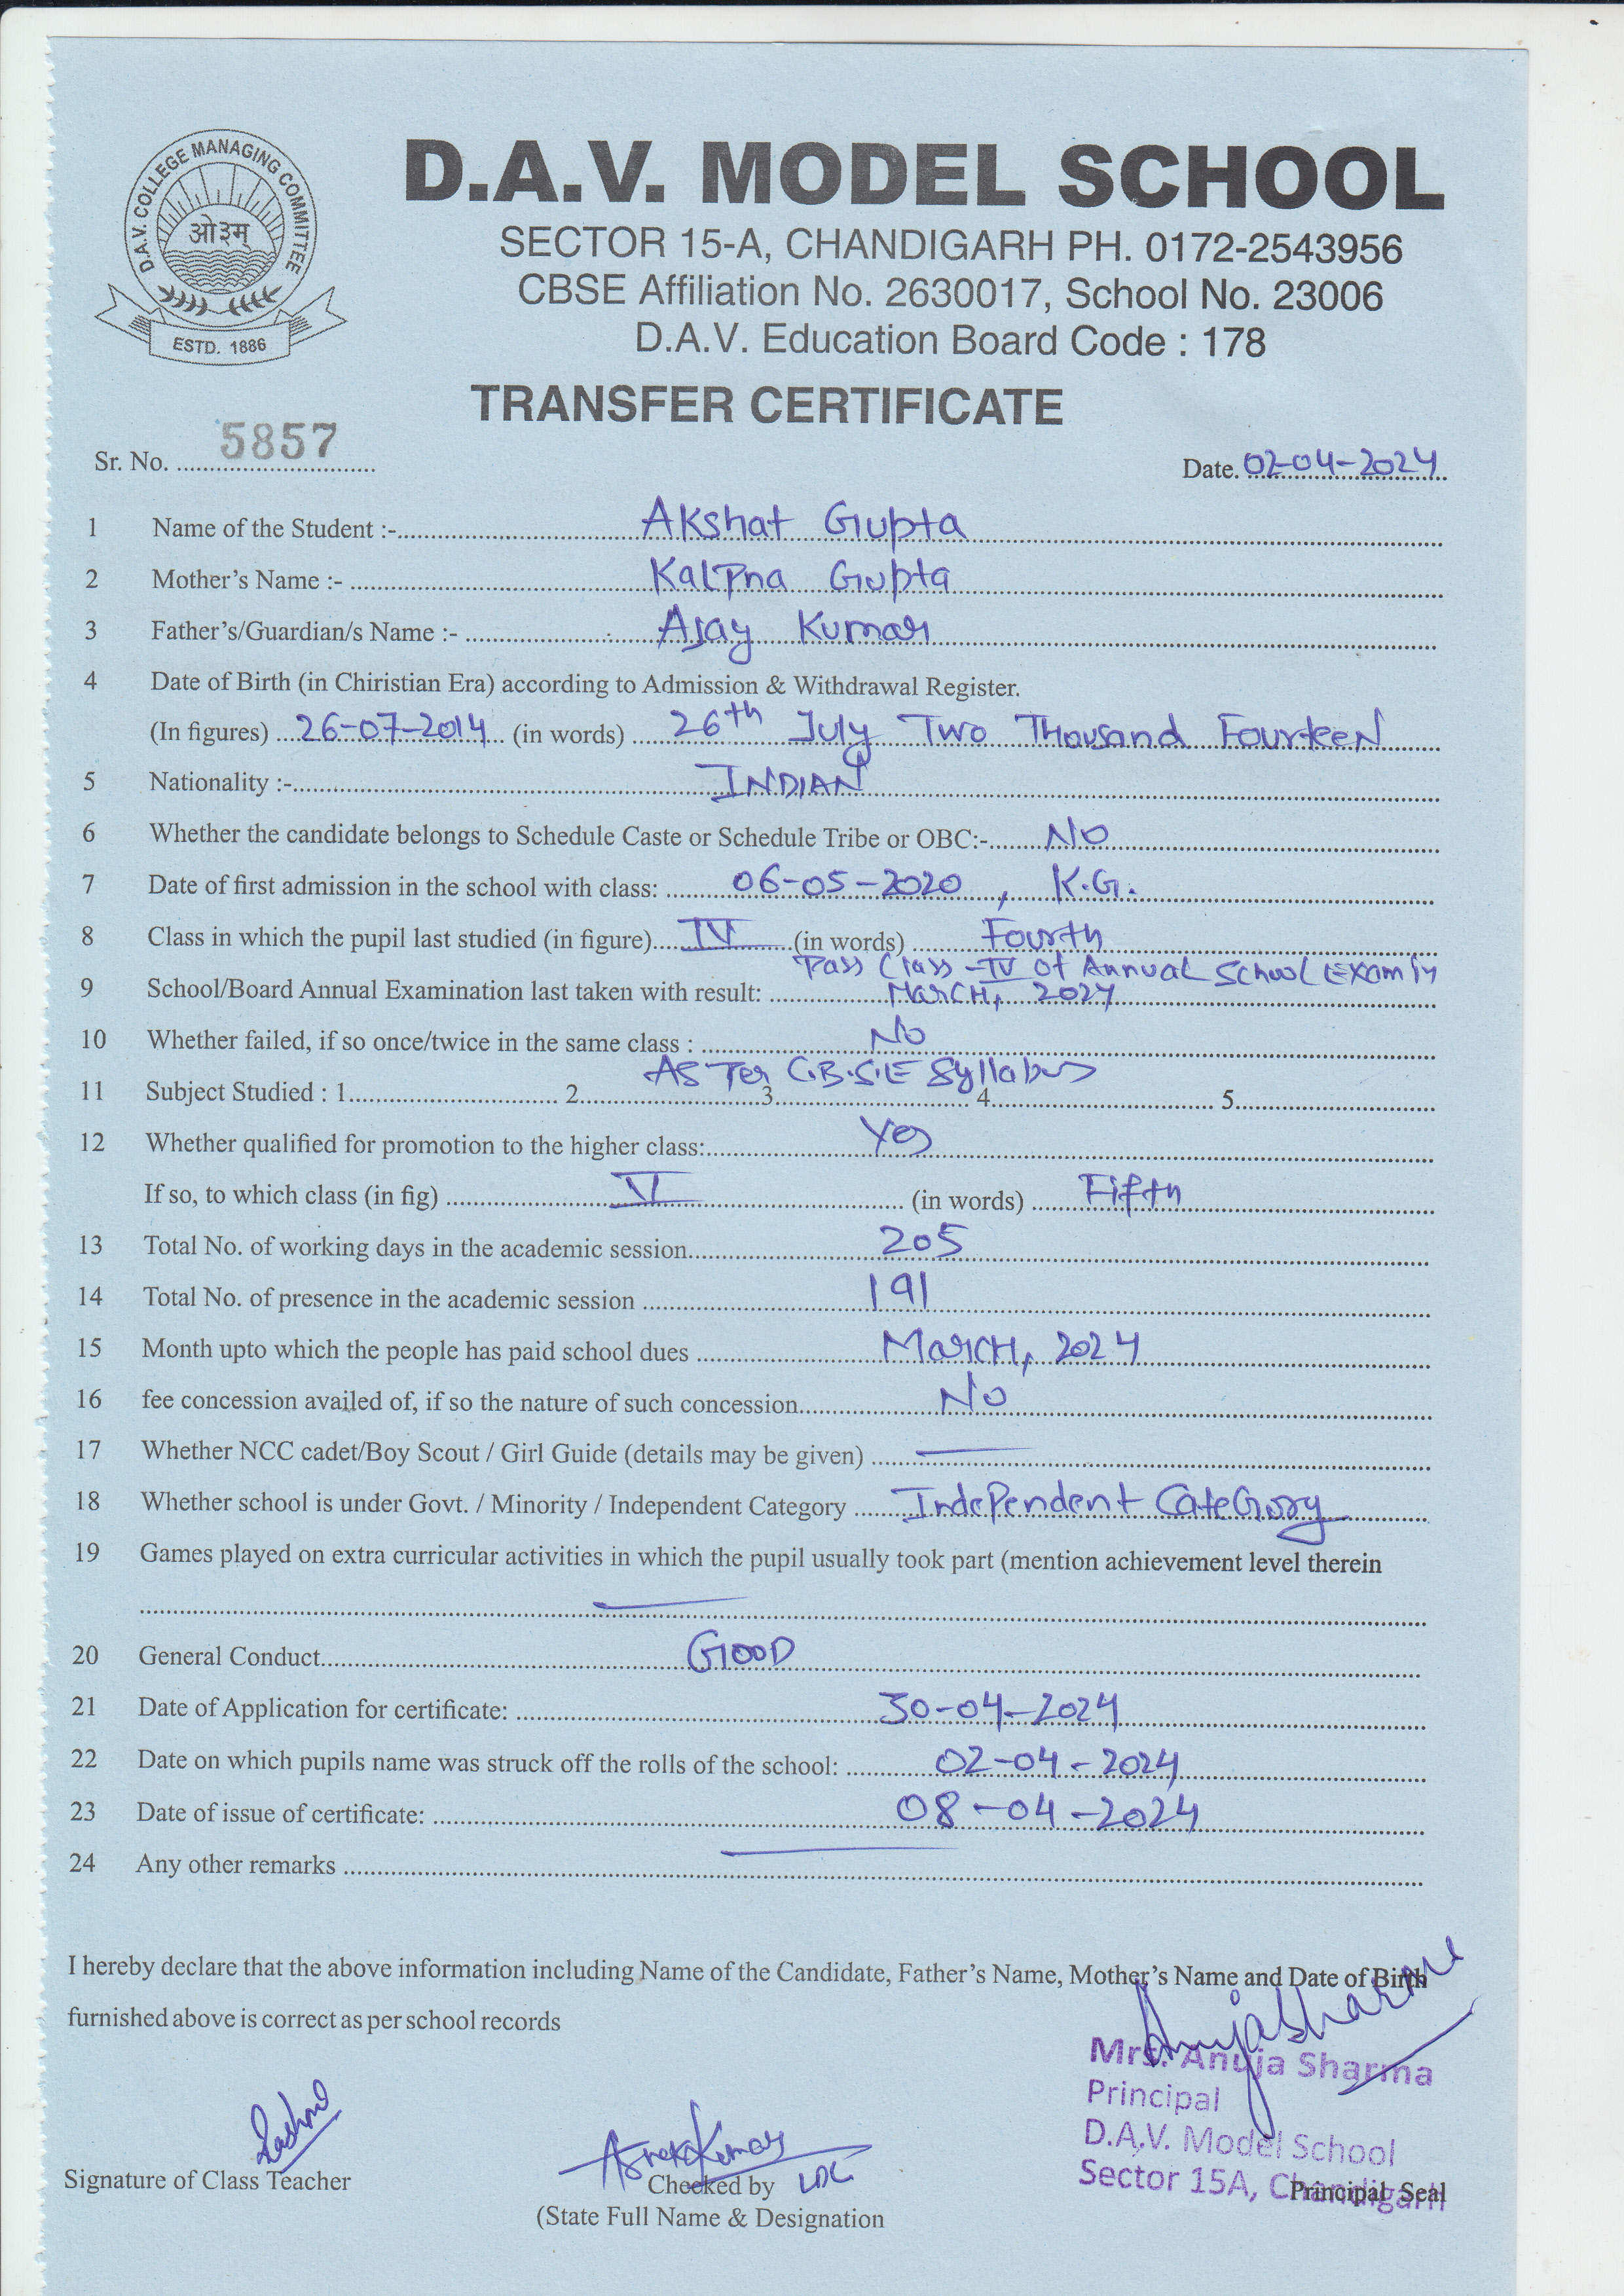 D.A.V. COLLEGE MANAGING COMMITTEE
ओ३म्
ESTD. 1886
D.A.V. MODEL SCHOOL
SECTOR 15-A, CHANDIGARH PH. 0172-2543956
CBSE Affiliation No. 2630017, School No. 23006
D.A.V. Education Board Code : 178
TRANSFER CERTIFICATE
Sr. No. 5857 Date. 02-04-2024
1 Name of the Student :- Akshat Gupta
2 Mother's Name :- Kalpna Gupta
3 Father's/Guardian/s Name :- Ajay Kumar
4 Date of Birth (in Chiristian Era) according to Admission & Withdrawal Register.
(In figures) 26-07-2014 (in words) 26th July Two Thousand Fourteen
5 Nationality :- INDIAN
6 Whether the candidate belongs to Schedule Caste or Schedule Tribe or OBC:- No
7 Date of first admission in the school with class: 06-05-2020, K.G.
8 Class in which the pupil last studied (in figure) IV (in words) Fourth
Pass Class -IV of Annual School Exam in
9 School/Board Annual Examination last taken with result: March, 2024
10 Whether failed, if so once/twice in the same class : No
As Per C.B.S.E Syllabus
11 Subject Studied : 1. 2. 3. 4. 5.
12 Whether qualified for promotion to the higher class: Yes
If so, to which class (in fig) V (in words) Fifth
13 Total No. of working days in the academic session 205
14 Total No. of presence in the academic session 191
15 Month upto which the people has paid school dues March, 2024
16 fee concession availed of, if so the nature of such concession No
17 Whether NCC cadet/Boy Scout / Girl Guide (details may be given) —
18 Whether school is under Govt. / Minority / Independent Category Independent Category
19 Games played on extra curricular activities in which the pupil usually took part (mention achievement level therein
—
20 General Conduct Good
21 Date of Application for certificate: 30-04-2024
22 Date on which pupils name was struck off the rolls of the school: 02-04-2024
23 Date of issue of certificate: 08-04-2024
24 Any other remarks —
I hereby declare that the above information including Name of the Candidate, Father's Name, Mother's Name and Date of Birth
furnished above is correct as per school records
Anuja Sharma
Mrs. Anuja Sharma
Principal
D.A.V. Model School
Sector 15A, Chandigarh
Signature of Class Teacher
Checked by LDC
(State Full Name & Designation
Principal Seal